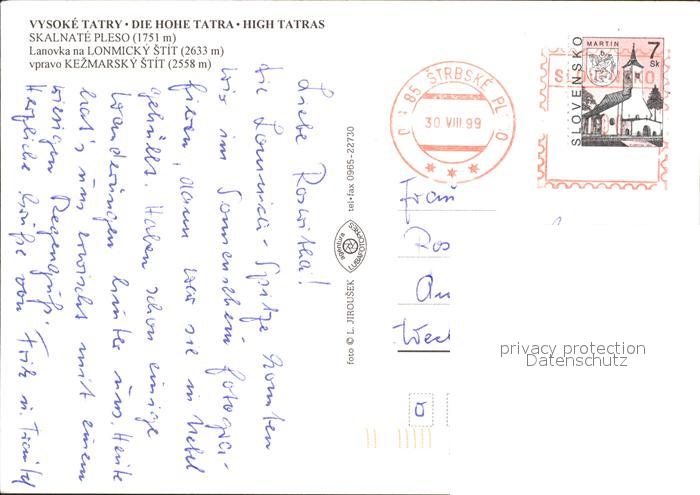 VYSOKÉ TATRY • DIE HOHE TATRA • HIGH TATRAS
SKALNATÉ PLESO (1751 m)
Lanovka na LONMICKÝ ŠTÍT (2633 m)
vpravo KEŽMARSKÝ ŠTÍT (2558 m)
Liebe Roswitha!
die Lomnici-Spitze konnten
wir im Sonnenschein fotogra-
fieren, dann war sie in Nebel
gehüllt. Haben schon einige
Wanderungen hinter uns. Heute
hat's uns erwischt mit einem
riesigen Regenguß.
Herzliche Grüße von Fritz u.
foto © L. JIROUŠEK
agentura
LUBAFOTOPRES
tel•fax 0965-22730
ŠTRBSKÉ PL
30. VIII. 99
SLOVENSKO
MARTIN
7
Sk
Frau
Ros
Au
privacy protection
Datenschutz